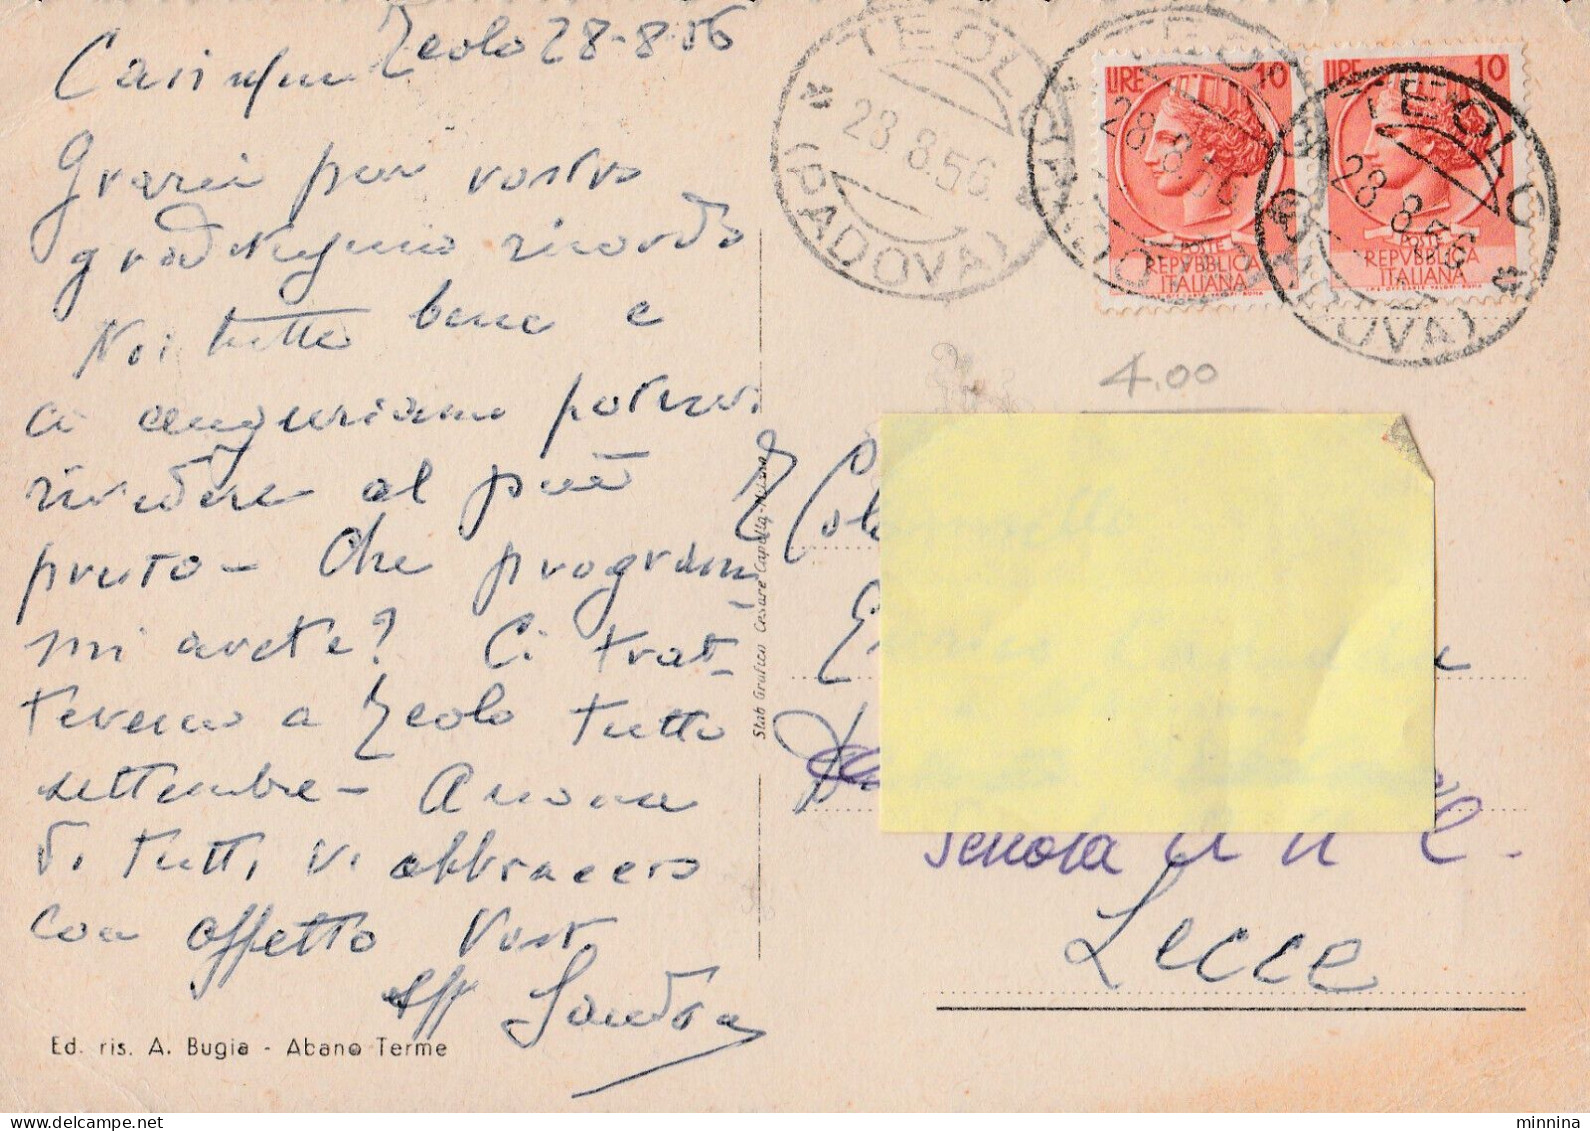 Teolo 28-8-56
Carissimi
Grazie per vostro
graditissimo ricordo
Noi tutti bene e
ci auguriamo potervi
rivedere al più
presto - Che program-
mi avete? Ci trat-
terremo a Teolo tutto
settembre - A nome
di tutti vi abbraccio
con affetto Vostr
aff Sandra
Ed. ris. A. Bugia - Abano Terme
Stab Grafico Cesare Capello-Milano
TEOLO
28.8.56
(PADOVA)
TEOLO
28.8.56
(PADOVA)
TEOLO
28.8.56
(PADOVA)
LIRE 10
POSTE
REPVBBLICA
ITALIANA
LIRE 10
POSTE
REPVBBLICA
ITALIANA
4.00
Scuola
Lecce
minnina